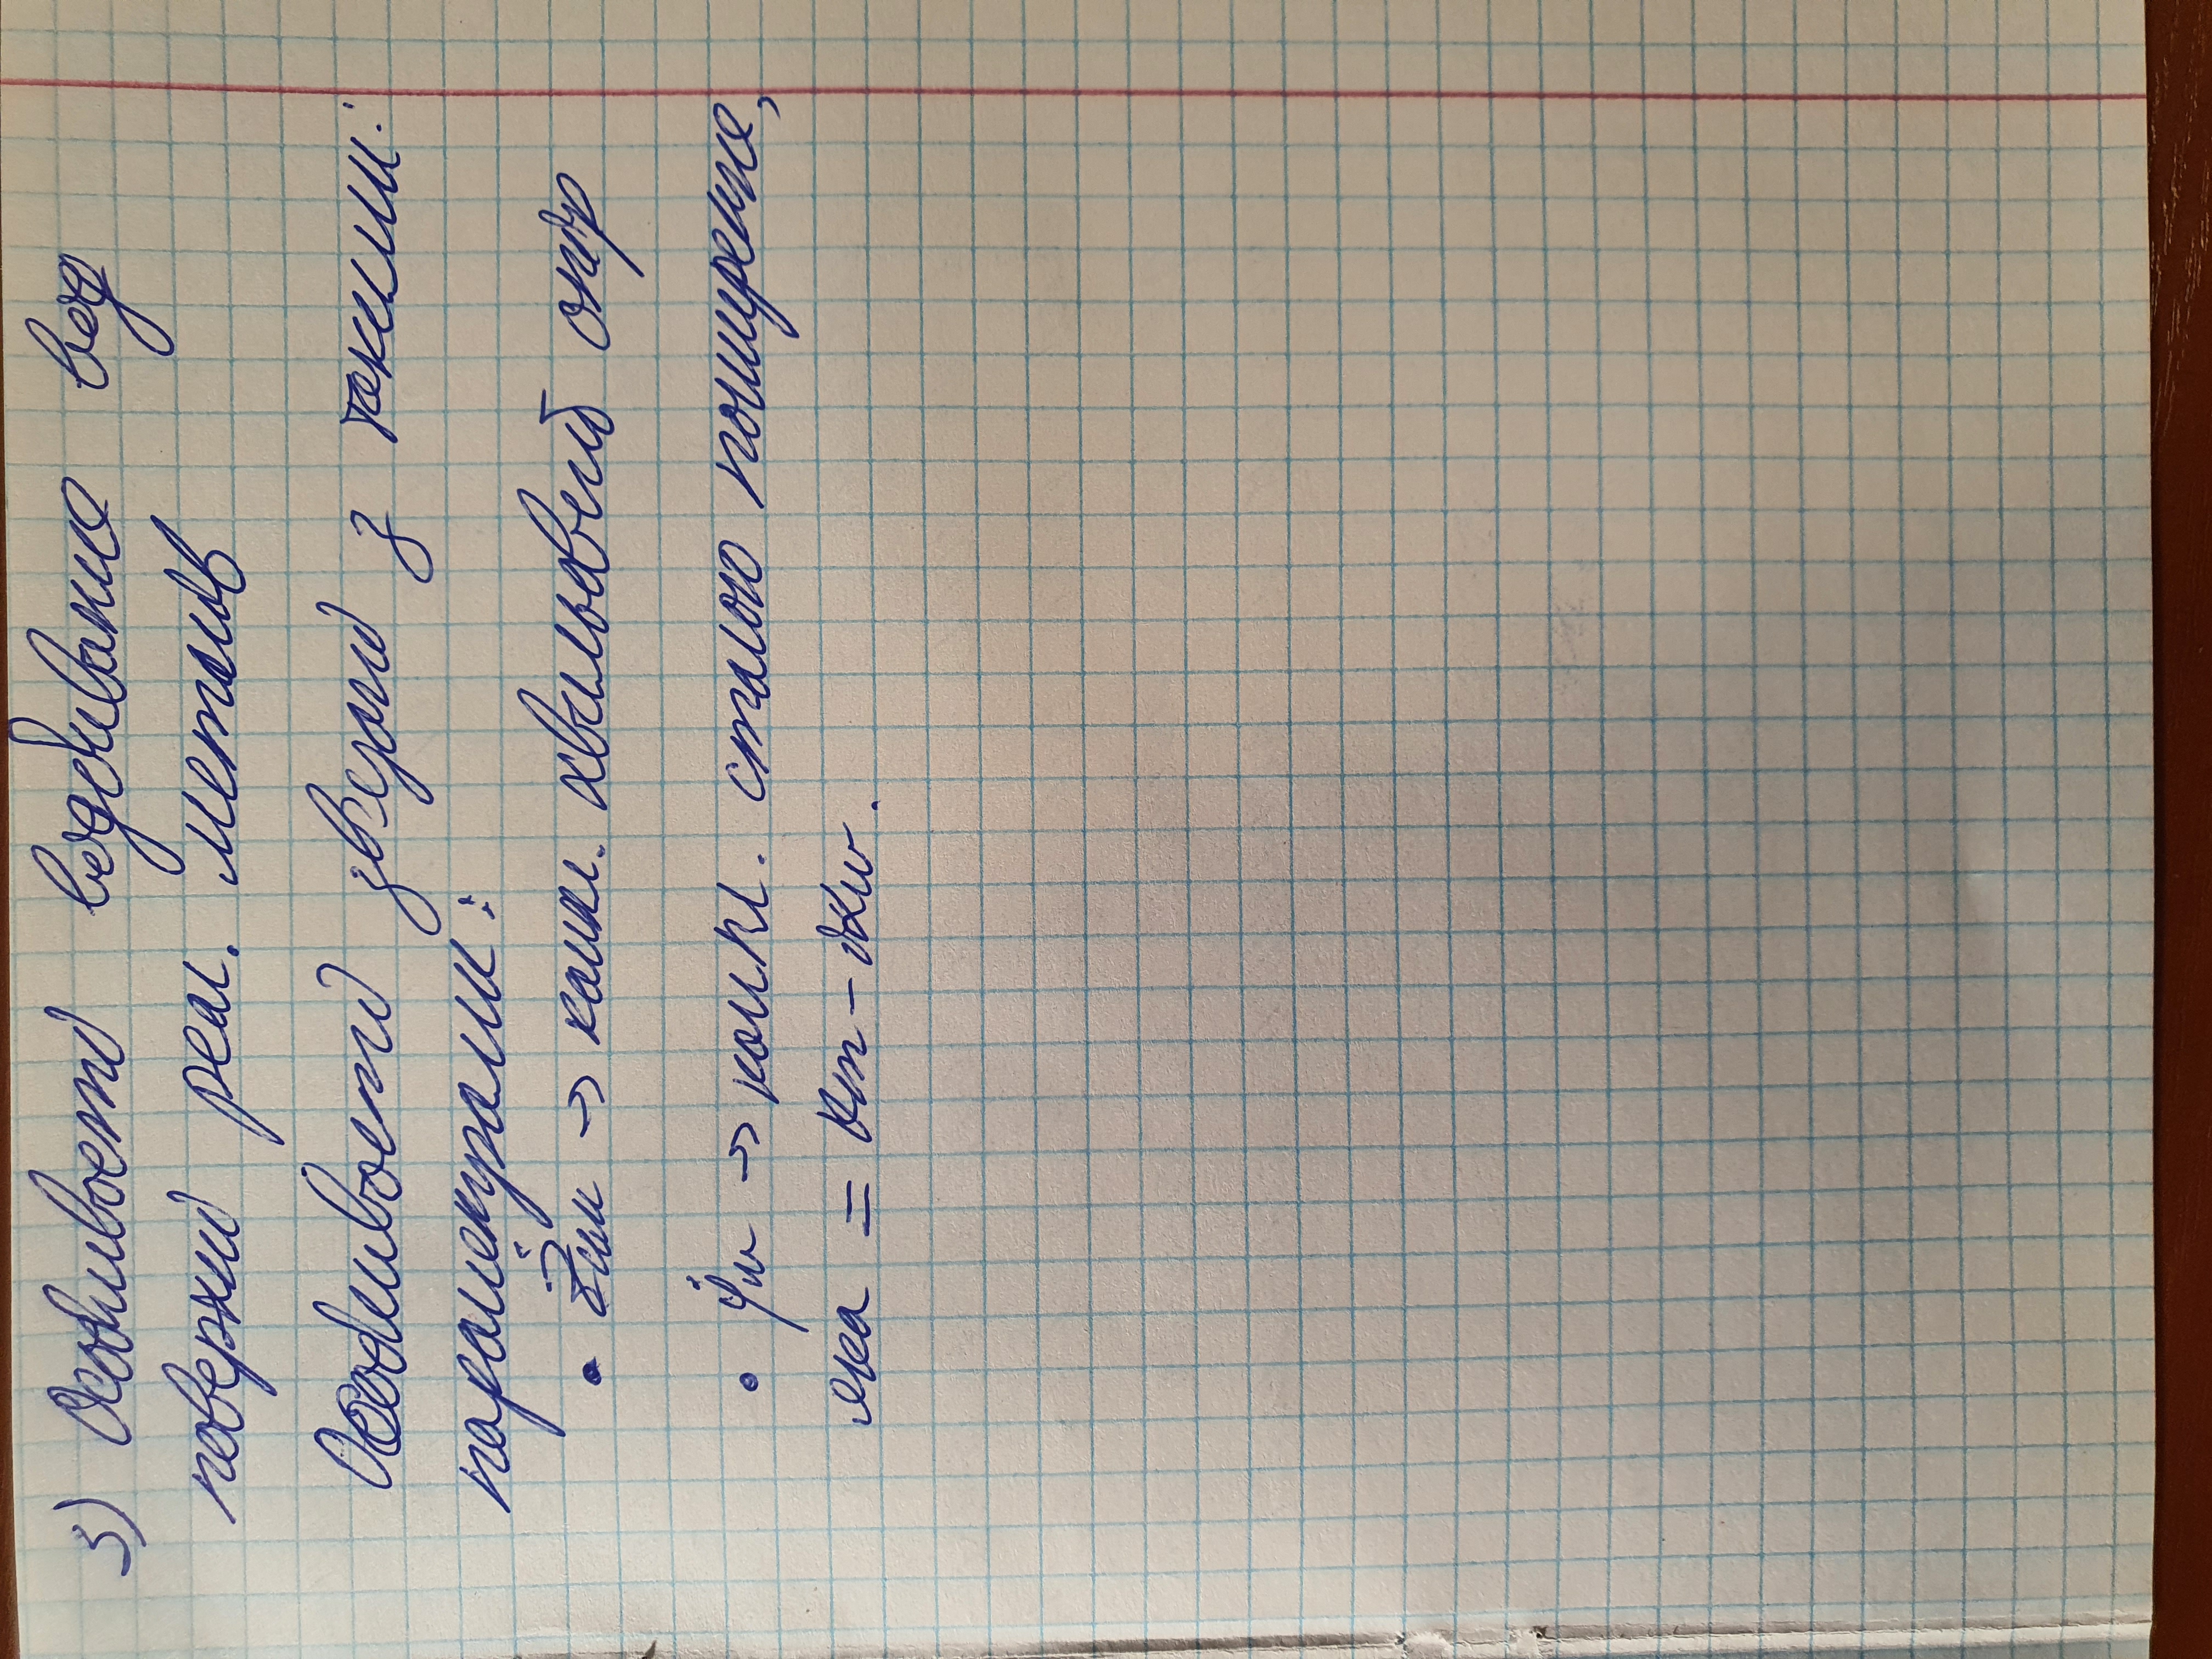 3) Особливості відбивання від
поверхні реал. металів
Особливості зв'язані з такими:
параметрами:
• Żхм → компл. хвильовий опір
• γ̇м → компл. сталою поширення,
яка = km - ikм.